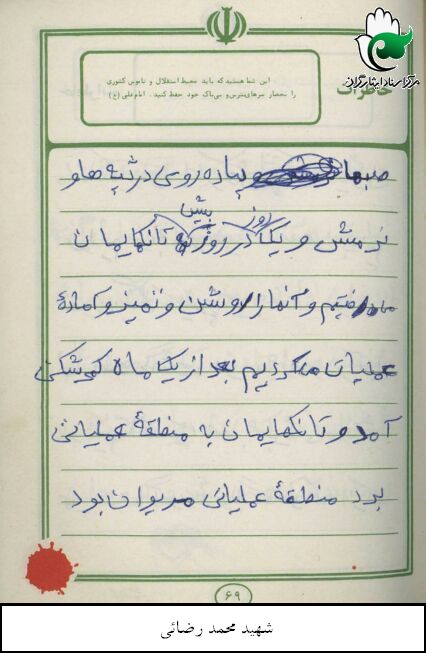 مرکز اسناد ایثارگران
خاطرات
این شما هستید که باید محیط استقلال و ناموس کشوری
را بحصار سرهای نترس و بی‌باک خود حفظ کنید. امام علی (ع)
صبها و پیاده روی در تپه ها و
روز پیش
نرمش و یک در روز تانکهایمان
ما می رفتیم و آنها را روشن و تمیز و آمادهٔ
عملیات می کردیم بعد از یک ماه کمرشکن
آمد و تانکهایمان به منطقهٔ عملیاتی
برد منطقهٔ عملیاتی مریوان بود
۶۹
شهید محمد رضائی